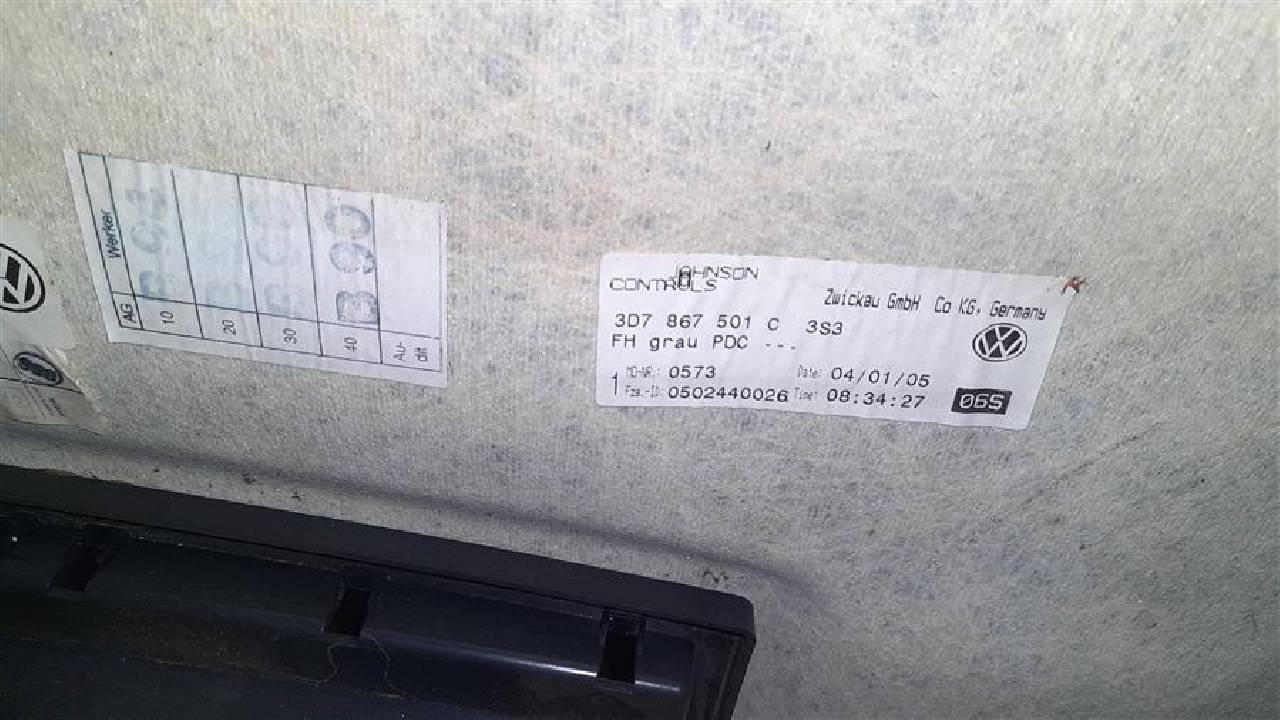 Werker
AG
10
20
30
40
Au-
dit
B 90
JOHNSON
CONTROLS
Zwickau GmbH Co KG, Germany
3D7 867 501 C 3S3
FH grau PDC ---
1
MO-NR.: 0573 Date: 04/01/05
Fzg.-ID: 0502440026 Time: 08:34:27
06S